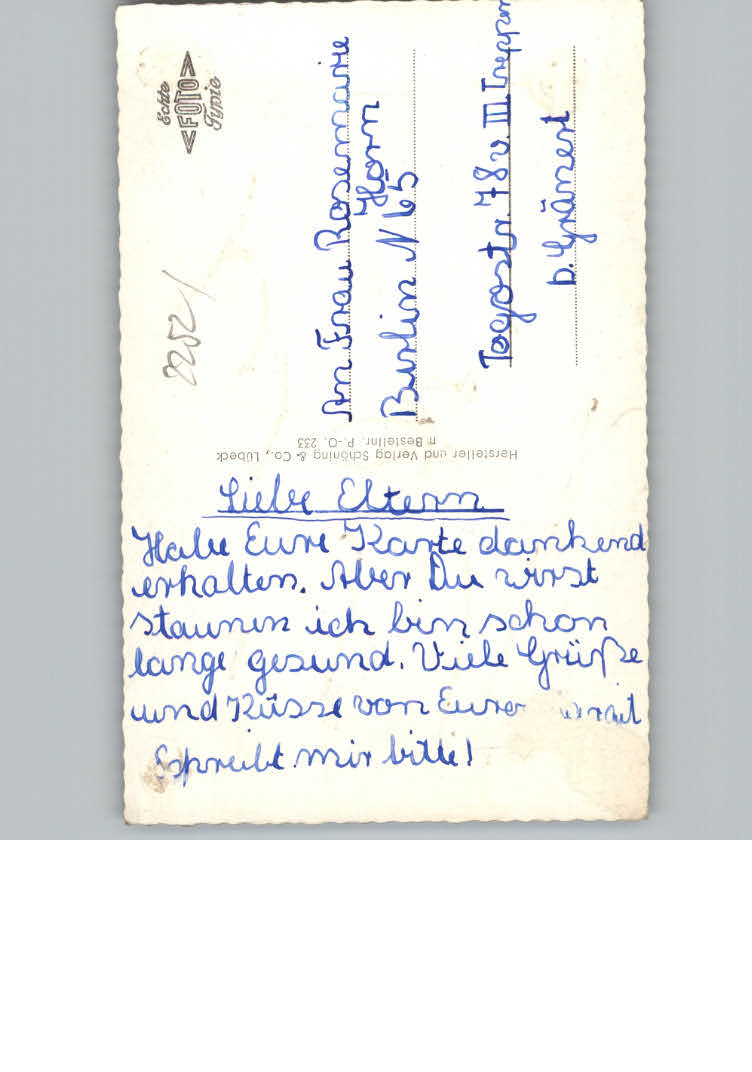 Echte
<FOTO>
Typie
2252/
An Frau Rosemarie
Horn
Berlin N 65
Togostr. 78 v. III Treppn
b. Gränert
Hersteller und Verlag Schöning & Co., Lübeck
Bestellnr. P.-O. 233
Liebe Eltern
Habe Eure Karte dankend
erhalten. Aber Du wirst
staunen ich bin schon
lange gesund. Viele Grüße
und Küsse von Eurer
Schreibt mir bitte!